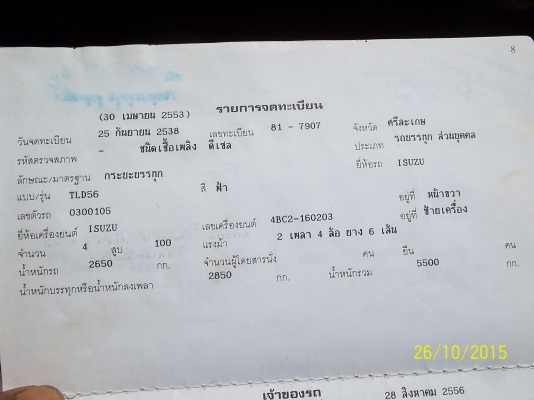 8
(30 เมษายน 2553) รายการจดทะเบียน
วันจดทะเบียน 25 กันยายน 2538 เลขทะเบียน 81 - 7907 จังหวัด ศรีสะเกษ
รหัสตรวจสภาพ - ชนิดเชื้อเพลิง ดีเซล ประเภท รถบรรทุก ส่วนบุคคล
ลักษณะ/มาตรฐาน กระบะบรรทุก ยี่ห้อรถ ISUZU
แบบ/รุ่น TLD56 สี ฟ้า
เลขตัวรถ 0300105 อยู่ที่ หน้าขวา
ยี่ห้อเครื่องยนต์ ISUZU เลขเครื่องยนต์ 4BC2-160203 อยู่ที่ ซ้ายเครื่อง
จำนวน 4 สูบ 100 แรงม้า 2 เพลา 4 ล้อ ยาง 6 เส้น
น้ำหนักรถ 2650 กก. จำนวนผู้โดยสารนั่ง คน ยืน คน
น้ำหนักบรรทุกหรือน้ำหนักลงเพลา 2850 กก. น้ำหนักรวม 5500 กก.
26/10/2015
เจ้าของรถ 28 สิงหาคม 2556